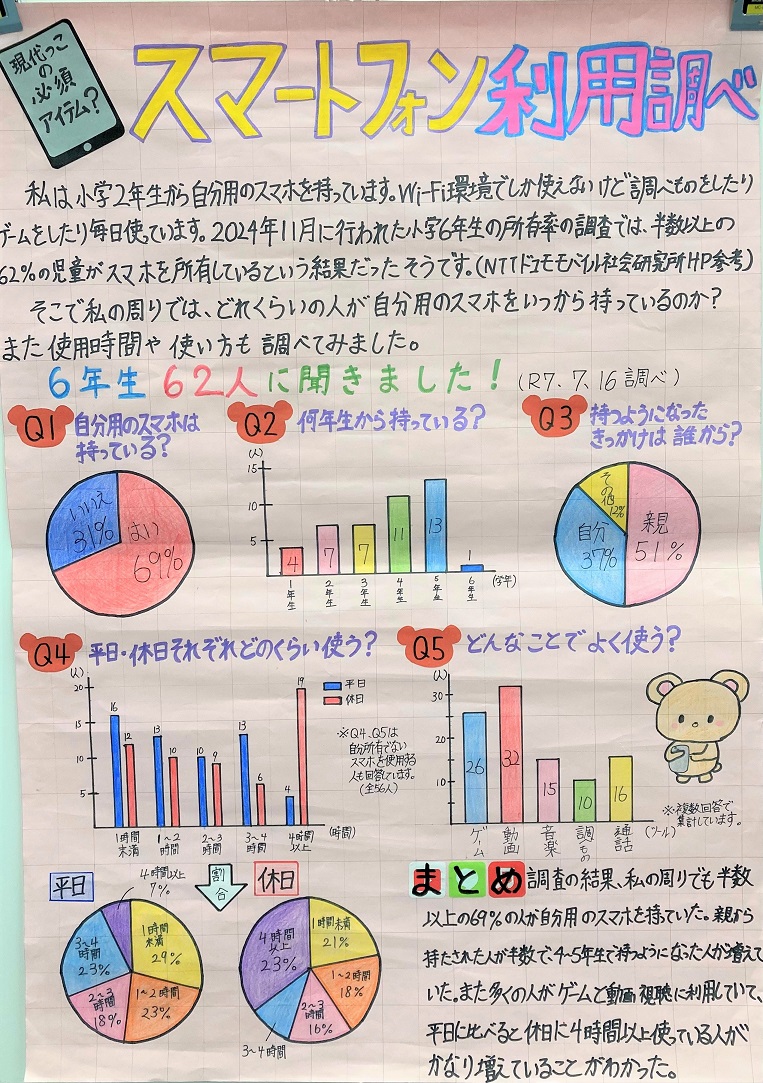 現代っこ
の
必須
アイテム？
スマートフォン利用調べ
私は小学2年生から自分用のスマホを持っています。Wi-Fi環境でしか使えないけど調べものをしたり
ゲームをしたり毎日使っています。2024年11月に行われた小学6年生の所有率の調査では、半数以上の
62%の児童がスマホを所有しているという結果だったそうです。(NTTドコモモバイル社会研究所HP参考)
そこで私の周りでは、どれくらいの人が自分用のスマホをいつから持っているのか？
また使用時間や使い方も調べてみました。
6年生62人に聞きました！(R7、7、16調べ)
Q1 自分用のスマホは
持っている？
いいえ
31%
はい
69%
Q2 何年生から持っている？
(人)
15
10
5
4
7
7
11
13
1
1年生
2年生
3年生
4年生
5年生
6年生
(学年)
Q3 持つようになった
きっかけは誰から？
その他
12%
自分
37%
親
51%
Q4 平日・休日それぞれどのくらい使う？
(人)
20
15
10
5
16
12
13
10
10
9
13
6
4
19
1時間
未満
1〜2
時間
2〜3
時間
3〜4
時間
4時間
以上
(時間)
平日
休日
※Q4、Q5は
自分所有でない
スマホを使用する
人も回答しています。
(全56人)
Q5 どんなことでよく使う？
(人)
30
20
10
26
32
15
10
16
ゲーム
動画
音楽
調べもの
通話
(ツール)
※複数回答で
集計しています。
平日
4時間以上
7%
3〜4
時間
23%
1時間
未満
29%
2〜3
時間
18%
1〜2時間
23%
割合
休日
4時間
以上
23%
1時間未満
21%
1〜2時間
18%
2〜3
時間
16%
3〜4時間
まとめ 調査の結果、私の周りでも半数
以上の69%の人が自分用のスマホを持っていた。親から
持たされた人が半数で、4〜5年生で持つようになった人が増えて
いた。また多くの人がゲームと動画視聴に利用していて、
平日に比べると休日に4時間以上使っている人が
かなり増えていることがわかった。